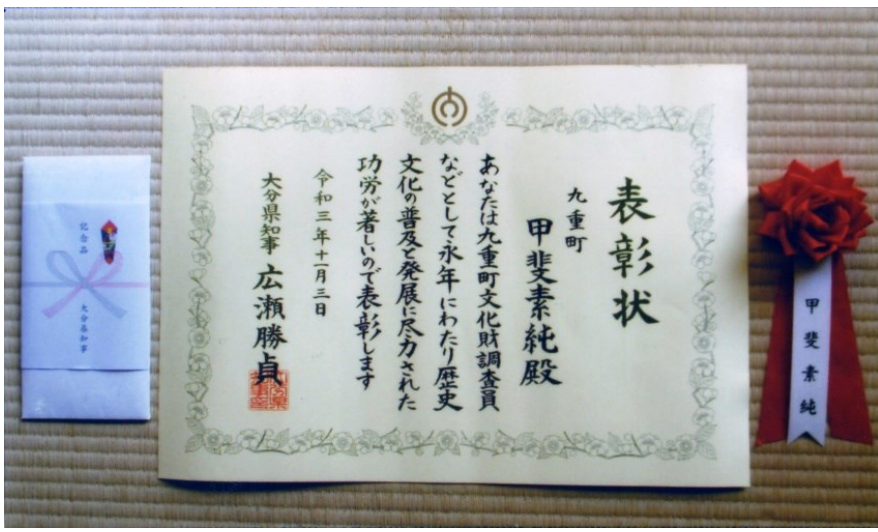 表彰状
九重町
甲斐素純殿
あなたは九重町文化財調査員
などとして永年にわたり歴史
文化の普及と発展に尽力された
功労が著しいので表彰します
令和三年十一月三日
大分県知事 広瀬勝貞
記念品
大分県知事
甲斐素純